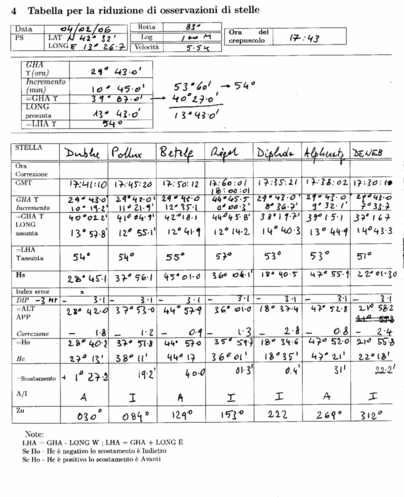 4 Tabella per la riduzione di osservazioni di stelle
Data 04/02/06 Rotta 83° Ora del crepuscolo 17:43
PS LAT N 42° 32' Log 100 M
LONG E 13° 26.7 Velocità 5.5k
GHA ϒ(ora) 29° 43.0'
Incremento (min) 10° 45.0' 53°60' → 54°
=GHA ϒ 39° 87.0' 40°27.0'
LONG presunta 13° 43.0' 13°43.0'
=LHA ϒ 54°
STELLA Dubhe Pollux Betelg Rigel Diphda Alpheratz DENEB
Ora
Correzione
GMT 17:41:10 17:45:20 17:50:12 17:60:01 17:35:21 17:38:02 17:30:10
18:00:01
GHA ϒ 29° 43.0 29° 43.0' 29° 43.0 44° 45.5 29° 43.0' 29° 43.0' 29° 43.0
Incremento 10° 19.2' 11° 21.9' 12° 35.1 0° 00.3' 8° 36.7' 9° 32.1' 7° 33.7
=GHA ϒ 40° 02.2' 41° 04.9' 42° 18.1 44° 45.8' 38° 19.7' 39° 15.1 37° 16.7
LONG assunta 13° 57.8' 12° 55.1' 12° 41.9 12° 14.2 14° 40.3 13° 44.9 14° 43.3
=LHA ϒassunta 54° 54° 55° 57° 53° 53° 51°
Hs 28° 45.1 37° 56.1 45° 01.0 36° 04.1' 18° 40.5 47° 55.9 22° 01.30
Index error
DIP -3 MT - 3.1 - 3.1 - 3.1 - 3.1 - 3.1 - 3.1 - 3.1
=ALT APP 28° 42.0 37° 53.0 44° 57.9 36° 01.0 18° 37.4 47° 52.8 21° 58.2
Correzione - 1.8 - 1.2 - 0.9 - 1.3 - 2.8 - 0.8 - 2.4
=Ho 28° 40.2 37° 51.8 44° 57.0 35° 59.7 18° 34.6 47° 52.0 21° 55.8
Hc 27° 13' 38° 11' 44° 17 36° 01' 18° 35' 47° 21' 22° 18'
=Scostamento + 1° 27.2 19.2' 40.0 01.3' 0.4' 31' 22.2'
A/I A I A I I A I
Zn 030° 084° 129° 153° 222 269° 312°
Note:
LHA = GHA - LONG W ; LHA = GHA + LONG E
Se Ho - Hc è negativo lo scostamento è Indietro
Se Ho - Hc è positivo lo scostamento è Avanti